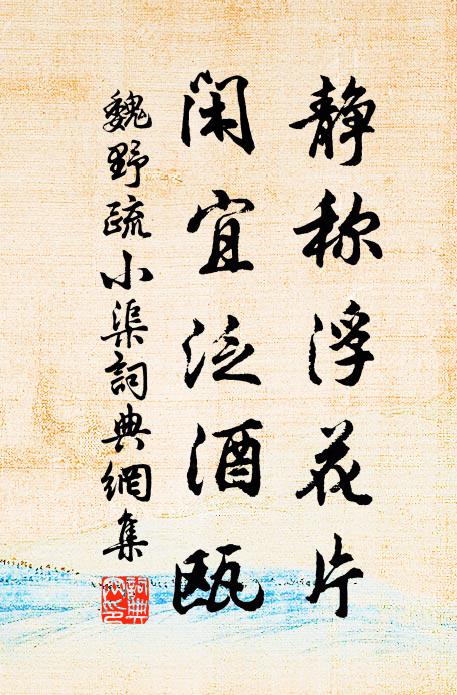 静称浮花片
闲宜泛酒瓯
魏野疏小渠詞典網集
詞典